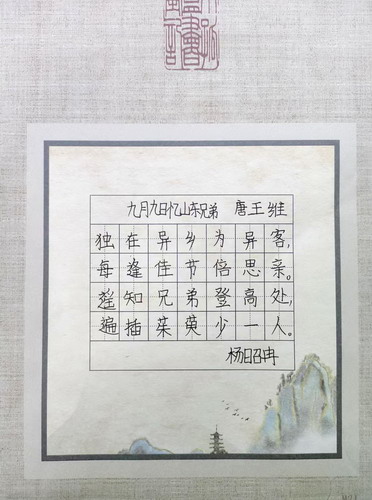 九月九日忆山东兄弟 唐 王维
独在异乡为异客，
每逢佳节倍思亲。
遥知兄弟登高处，
遍插茱萸少一人。
杨昭冉